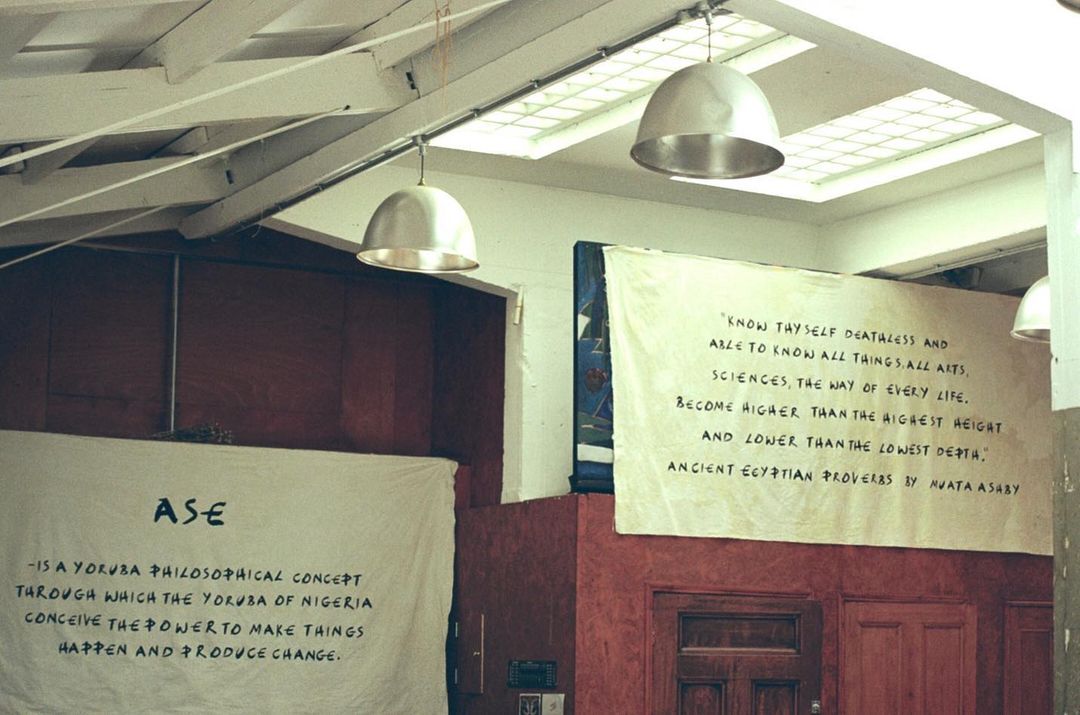 ASE
-IS A YORUBA PHILOSOPHICAL CONCEPT
THROUGH WHICH THE YORUBA OF NIGERIA
CONCEIVE THE POWER TO MAKE THINGS
HAPPEN AND PRODUCE CHANGE.
"KNOW THYSELF DEATHLESS AND
ABLE TO KNOW ALL THINGS, ALL ARTS,
SCIENCES, THE WAY OF EVERY LIFE.
BECOME HIGHER THAN THE HIGHEST HEIGHT
AND LOWER THAN THE LOWEST DEPTH."
ANCIENT EGYPTIAN PROVERBS BY MUATA ASHBY